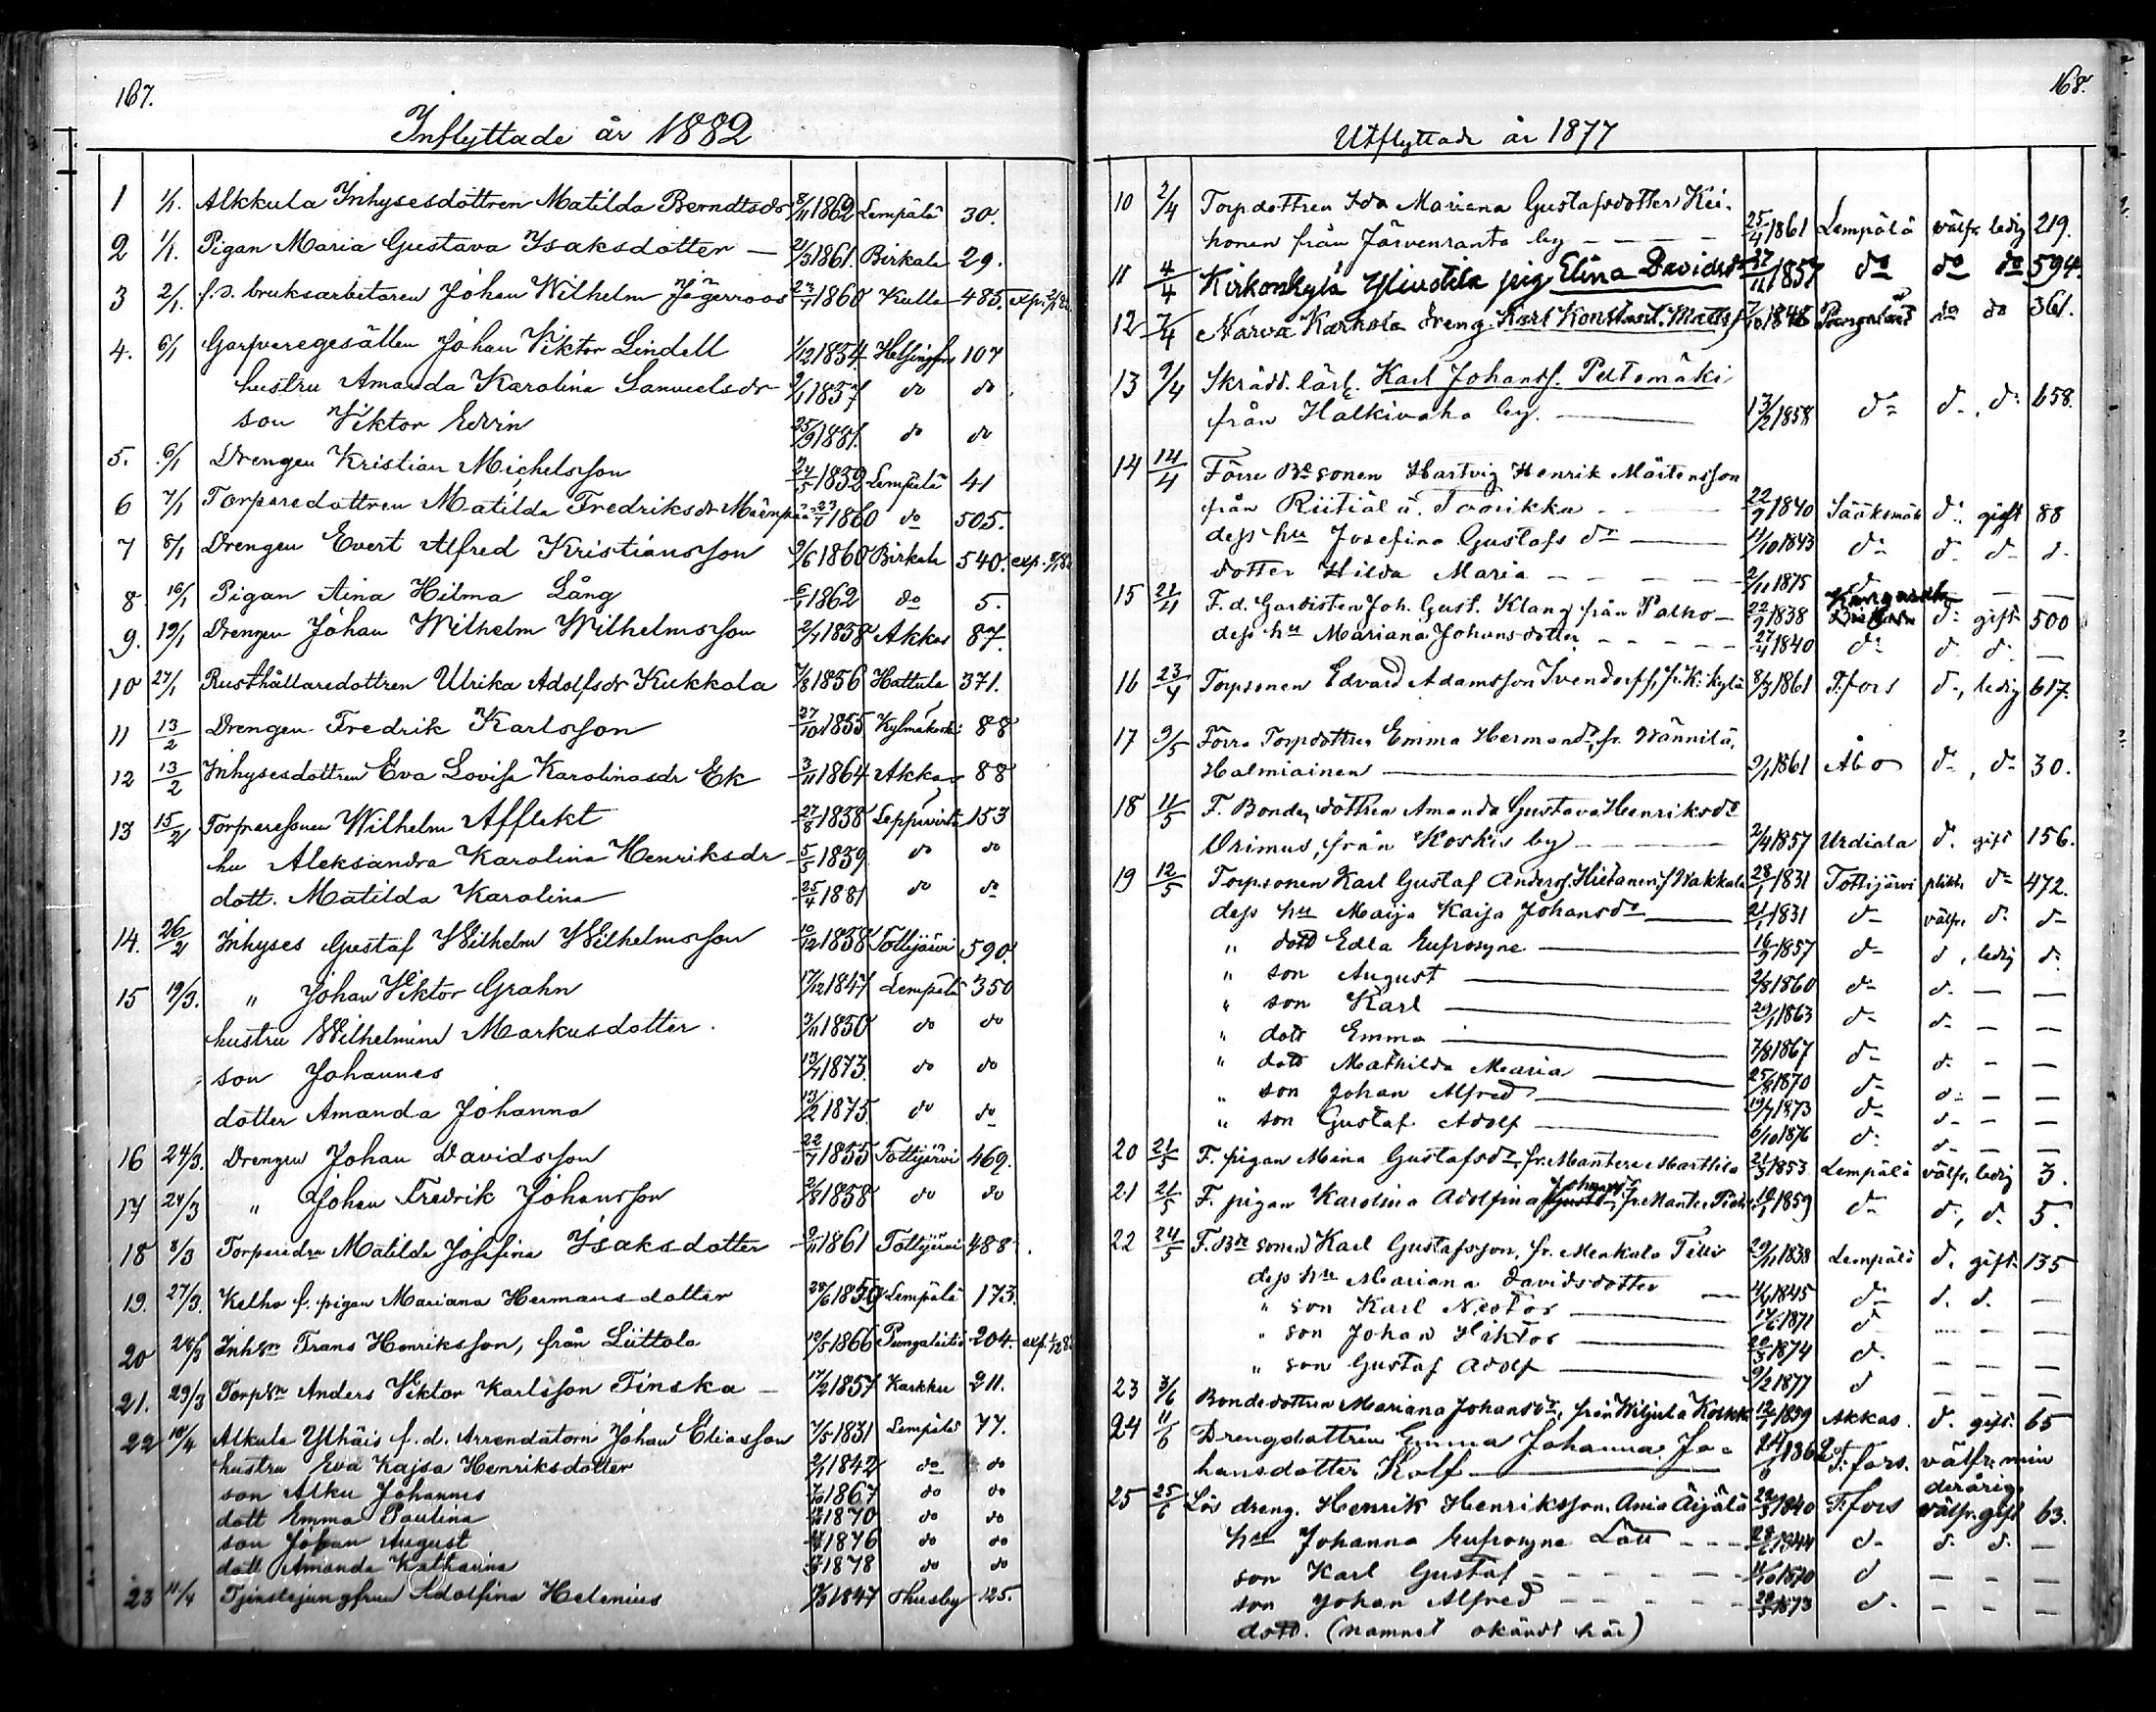 167.
Inflyttade år 1882
1 1/1. Alkkula Inhysesdottren Matilda Berndtsdr 8/11 1862 Lempälä 30.
2 1/1. Pigan Maria Gustava Isaksdotter — 21/3 1861. Birkala 29.
3 2/1. f.d. bruksarbetaren Johan Wilhelm Jägerroos 1860 Kulla 485. exp.
4. 6/1 Garfvaregesällen Johan Viktor Lindell 1/12 1854. Helsingfors 107
hustru Amanda Karolina Samuelsdr 9/1 1857 do do
son Viktor Edvin 25/9 1881. do do
5. 6/1 Drengen Kristian Michelsson 24/5 1832 Lempälä 41
6 7/1 Torparedottren Matilda Fredriksdr Mäenpää 23/7 1860 do 505.
7 8/1 Drengen Evert Alfred Kristiansson 9/6 1860 Birkala 540. exp.
8 16/1 Pigan Aina Hilma Lång 6/1 1862 do 5.
9. 19/1 Drengen Johan Wilhelm Wilhelmsson 2/1 1858 Akkas 87.
10 27/1 Rusthållaredottren Ulrika Adolfsdr Kukkola 7/8 1856 Hattula 371.
11 13/2 Drengen Fredrik Karlsson 27/10 1855 Kylmäkoski 88
12 13/2 Inhysesdottren Eva Lovisa Karolinasdr Ek 3/11 1864 Akkas 88
13 15/2 Torparesonen Wilhelm Afflekt 27/8 1838 Leppävirta 153
hu Aleksandra Karolina Henriksdr 5/5 1839 do do
dott. Matilda Karolina 25/4 1881 do do
14. 26/2 Inhyses Gustaf Wilhelm Wilhelmsson 10/12 1838 Tottijärvi 590.
15 19/3. " Johan Viktor Grahn 17/12 1847 Lempälä 350
hustru Wilhelmina Markusdotter. 3/11 1850 do do
son Johannes 13/7 1873. do do
dotter Amanda Johanna 13/2 1875. do do
16 24/3. Drengen Johan Davidsson 22/7 1855 Tottijärvi 469.
17 24/3 " Johan Fredrik Johansson 2/8 1858 do do
18 8/3 Torparedrn Matilda Josefina Isaksdotter 9/11 1861 Tottijärvi 488.
19. 27/3. Kelho f. pigan Mariana Hermansdotter 28/6 1859 Lempälä 173.
20 28/3 Inhsn Frans Henriksson, från Liittola 12/5 1866 Pungalaitio 204. exp.
21. 29/3 Torpsn Anders Viktor Karlsson Finska — 17/2 1857 Karkku 211.
22 10/4 Alkula Ylhäis f.d. Arrendatorn Johan Eliasson 7/5 1831 Lempälä 77.
hustru Eva Kajsa Henriksdotter 2/1 1842 do do
son Alku Johannes 7/10 1867 do do
dott Emma Paulina 1870 do do
son Johan August 1876 do do
dott Amanda Katharina 1878 do do
23 11/4 Tjenstejungfrun Adolfina Helenius 1847 Thusby 125.
168.
Utflyttade år 1877
10 2/4 Torpdottren Ida Mariana Gustafsdotter Kei-
honen från Järvenranta by 25/4 1861 Lempälä välfr. ledig 219.
11 4/4 Kirkonkylä Yliuotila pig Elina Davidsdr 27/11 1857 do do do 594.
12 7/4 Narva Karhola dreng Karl Konstant. Matts 7/10 1848 Pungalait do do 361.
13 9/4 Skrädd. lärl. Karl Johanss. Peltomäki
från Halkivaha by. 13/2 1858 do d., do 658.
14 14/4 Förre Bdesonen Hartvig Henrik Mårtensson
från Riitiälä. Toorikka 22/9 1840 Sääksmäki d. gift 88
dess hu Josefina Gustafs dr 11/10 1843 d. d. d. d.
dotter Hilda Maria 2/11 1875 d — —
15 21/4 F.d. Gardisten Joh. Gust. Klang från Palho 22/9 1838 d. gift 500
dess hu Mariana Johansdotter 27/4 1840 d. d. d. —
16 23/4 Torpsonen Edvard Adamsson Svendorff, fr. K.kylä 8/3 1861 T:fors d., ledig 617.
17 9/5 Förra Torpdottren Emma Hermansdr, fr. Wännilä,
Halmiainen 9/1 1861 Åbo d., d. 30.
18 11/5 F. Bondedottren Amanda Gustava Henriksdr
Orimus, från Koskis by 2/4 1857 Urdiala d. gift 156.
19 12/5 Torpsonen Karl Gustaf Anderss. Hietanen f. Wakkala 28/1 1831 Tottijärvi do 472.
dess hu Maija Kaisa Johansdr 21/1 1831 d. välfr. d. d.
" dott Edla Eufrosyne 16/9 1857 d. d, ledig d.
" son August 2/8 1860 d. d. — —
" son Karl 29/1 1863 d. d. — —
" dott Emma 7/8 1867 d. d. — —
" dott Mathilda Maria 25/8 1870 d. d. — —
" son Johan Alfred 19/7 1873 d. d. — —
" son Gustaf Adolf 6/10 1876 d. d. — —
20 21/5 F. pigan Mina Gustafsdr, fr. Mantere Marttila 21/3 1853 Lempälä välfr. ledig 3.
21 21/5 F. pigan Karolina Adolfina Johansdr, fr. Mantere 1859 d. d., d. 5.
22 24/5 F. Bdesonen Karl Gustafsson, fr. Menkala Tilli 29/11 1838 Lempälä d. gift 135
dess hu Mariana Davidsdotter 1845 d. d. d. —
" son Karl Nestor 17/6 1871 d — — —
" son Johan Viktor 20/3 1874 d. — — —
" son Gustaf Adolf 9/2 1877 d — — —
23 3/6 Bondedottren Mariana Johansdr, från Wiljula Kaukk 12/7 1859 Akkas. d. gift. 65
24 11/6 Drengdottren Emma Johanna Jo-
hansdotter Rolf 1862 T:fors. välfr. min
derårig.
25 25/6 Lös dreng. Henrik Henriksson. Ania Äijälä 22/3 1840 T:fors välfr. gift 63.
hu Johanna Eufrosyne Lätt 1844 d. d. d. —
son Karl Gustaf 1870 d — — —
son Johan Alfred 1873 d. — — —
dott. (namnet okändt här)